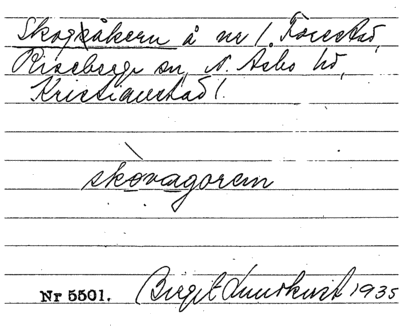 Skogsåkern å nr 1 Forestad,
Riseberga sn, N. Åsbo hd,
Kristianstad l.
skòvagoren
Nr 5501. Birgit Lundkvist 1935